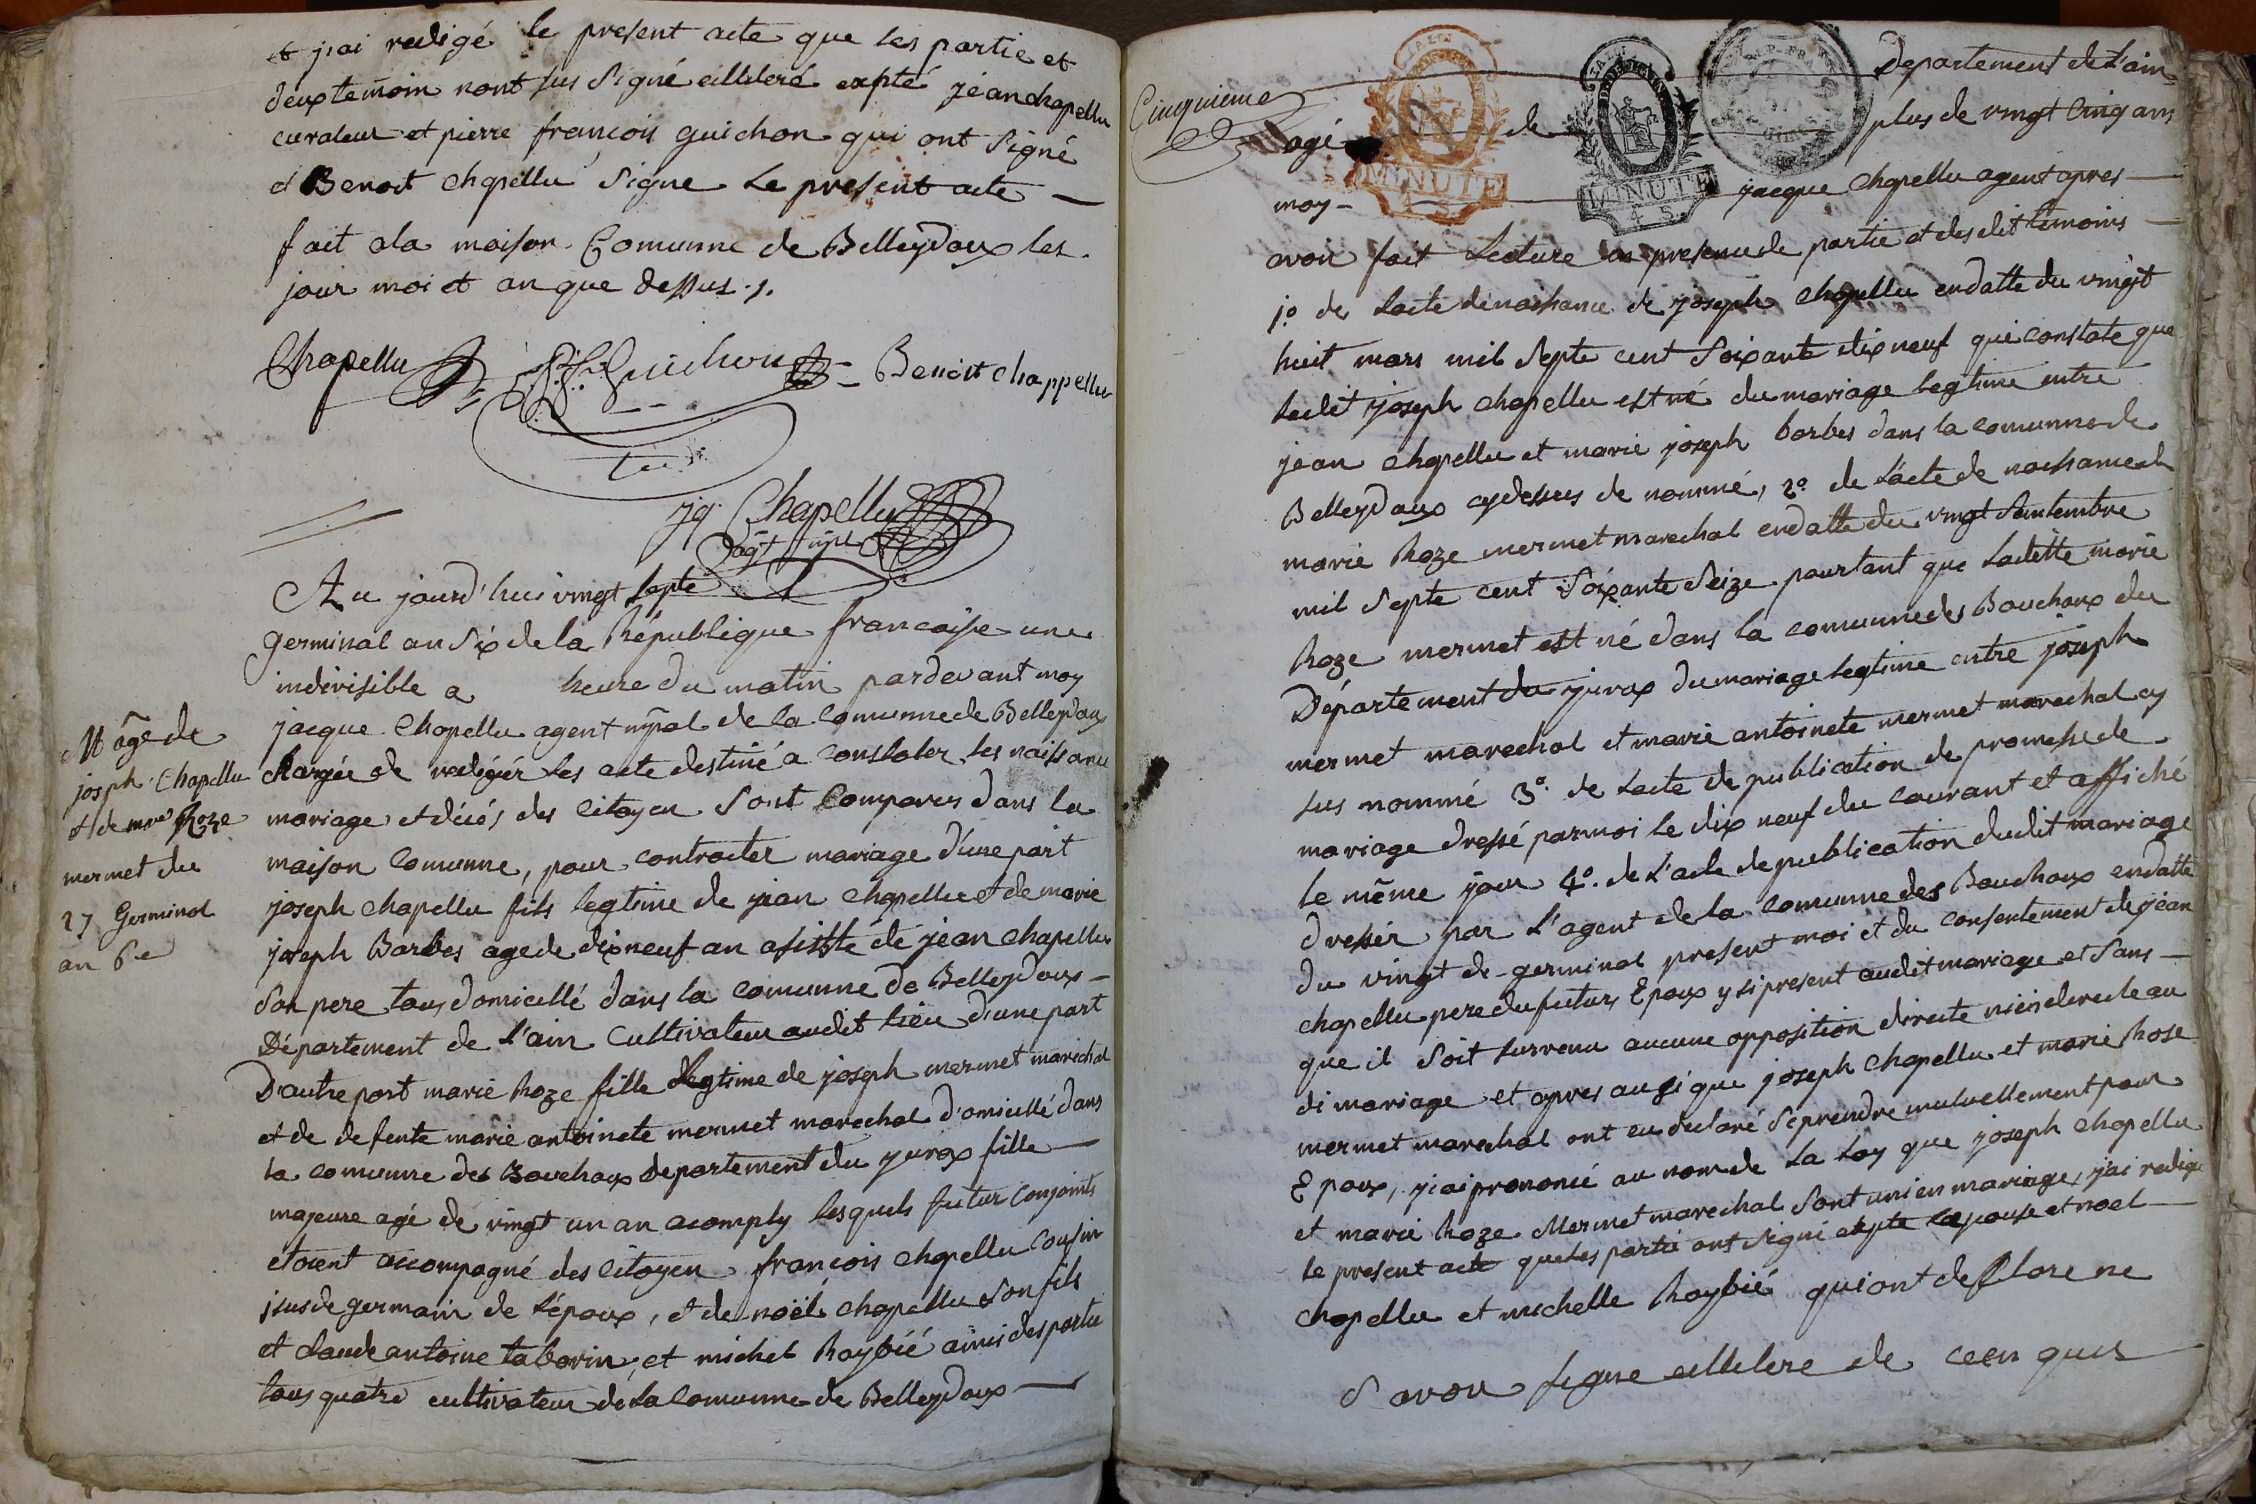 et j'ai redigé le present acte que les partie et
deux temoin nont sus signé illiteré expté jéan chapellu
curateur et pierre francois guichon qui ont signé
et Benoit chapellu signe le present acte —
fait a la maison Comunne de Belleydoux les
jour moi et an que dessus ./.
Chapellu Guichon Benoit chappellu
jq Chapellu
agt mpl
Au jourd'hui vingt septe
germinal an six de la République francaise une
indivisible a heure du matin pardevant moy
jacque Chapellu agent mpal de la Comunne de Belleydoux
chargée de redigér les acte destiné a constater les naissance
mariage et décés des citoyen sont Comparus dans la
maison Comunne, pour contracter mariage d'une part
joseph chapellu fils legtime de jéan chapellu et de marie
joseph Barbes age de dixneuf an assisté de jéan chapellu
son pere tous domicillé dans la comunne de Belleydoux —
Département de L'ain Cultivateur audit lieu d'une part
D'autre part marie Roze fille legtime de joseph mermet marechal
et de defente marie antoinete mermet marechal d'omicillé dans
la comunne des Bouchoux departement du jurax fille —
majeure agé de vingt un an acomply lesquels futur conjoints
etoient accompagné des citoyen francois chapellu Cousin
jsus de germain de L'époux, et de noël chapellu son fils
et claude antoine taborin, et michel Raybié amis des partie
tous quatre cultivateur de la Comunne de Belleydoux —
M age de
josph Chapellu
et de mrie Roze
mermet du
27 Germinal
an 6e
Cinquieme
Departement de L'ain
agé de plus de vingt Cinq ans
moy — jacque Chapellu agent apres —
avoir fait Lecture en presence de partie et des dit temoins —
1o de Lacte de naissance de joseph chapellu endatte du vingt
huit mars mil septe cent soixante dix neuf qui constate que
ledit joseph chapellu est né du mariage legtime entre
jéan chapellu et marie joseph barbes dans la comunne de
Belleydoux cydessus de nommé, 2o de Lacte de naissance de
marie Roze mermet marechal endatte du vingt sentembre
mil septe cent soixante seize pourtant que ladette marie
Roze mermet est né dans la comunne des Bouchoux du
Département du jurax du mariage legtime entre joseph
mermet marechal et marie antoinete mermet marechal cy
sus nommé 3o de Lacte de publication de promesse de
mariage dressé par moi le dix neuf du courant et affiché
le même jour 4o de L'acte de publication dudit mariage
dressér par L'agent de la comunne des Bouchoux endatte
du vingt de germinal present moi et du consentement de jéan
chapellu pere du futurs Epoux y si present audit mariage et sans —
que il soit survenu aucune opposition directe ni indirecte au
di mariage et apres ausi que joseph chapellu et marie Rose
mermet marechal ont eu declaré se prendre mutuellement pour
Epoux, j'ai prononcé au nom de La Loy que joseph chapellu
et marie Roze Mermet marechal sont uni en mariage, j'ai redige
le present acte que les partie ont signé expte Lepouse et noel —
chapellu et michelle Raybié qui ont declare ne
savoir signe illitere de ce en quis
MINUTE
MINUTE
4 S.